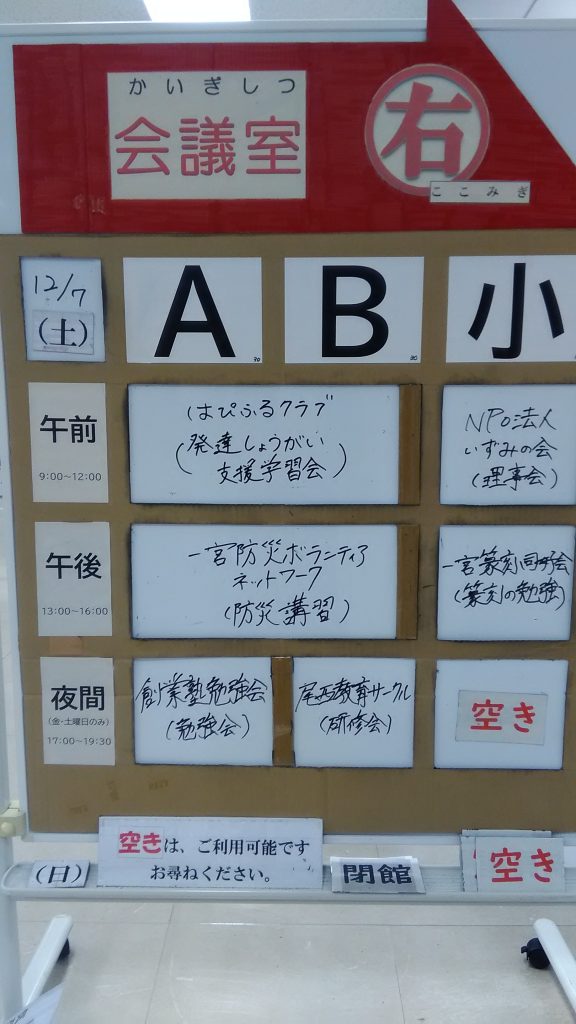 かいぎしつ
会議室
右
ここみぎ
12/7
(土)
A
B
小
午前
9:00~12:00
はぴふるクラブ
(発達しょうがい
支援学習会)
NPO法人
いずみの会
(理事会)
午後
13:00~16:00
一宮防災ボランティア
ネットワーク
(防災講習)
一宮篆刻同好会
(篆刻の勉強)
夜間
(金・土曜日のみ)
17:00~19:30
創業塾勉強会
(勉強会)
尾西教育サークル
(研修会)
空き
(日)
空きは、ご利用可能です
お尋ねください。
閉館
空き